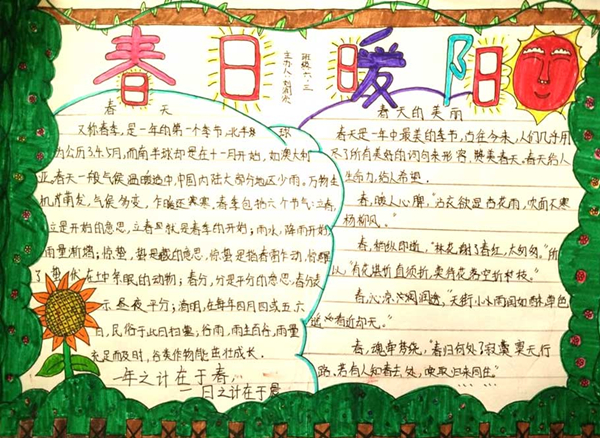 春日暖阳
班级六、三
主办人
春 天
又称春季,是一年的第一个季节,北半球
为公历3至5月,而南半球却是在十一月开始,如澳大利
亚。春天一般气候温暖适中,中国内陆大部分地区少雨。万物生
机萌发,气候多变,乍暖还寒。春季包括六个节气:立春,
立是开始的意思,立春是就是春季的开始;雨水,降雨开始
雨量渐增;惊蛰,蛰是藏的意思,惊蛰是指春雷乍动,惊醒
了蛰伏在土中冬眠的动物;春分,分是平分的意思,春分表
示昼夜平分;清明,在每年四月四或五六
日,民俗于此日扫墓,谷雨,雨生百谷,雨量
充足而及时,谷类作物能茁壮成长。
一年之计在于春,
一日之计在于晨
春天的美丽
春天是一年中最美的季节,古往今来,人们几乎用
尽了所有美好的词句来形容,赞美春天。春天给人
生命力,给人希望。
春,暖人心脾,“古衣欲湿杏花雨,吹面不寒
杨柳风。”
春,稍纵即逝,“林花谢了春红,太匆匆。”所
以,“有花堪折直须折,莫待花落空折枝。”
春,沁凉润透,“天街小雨润如酥,草色
遥看近却无。”
春,魂牵梦绕,“春归何处?寂寞无行
路,若有人知春去处,唤取归来同住。”